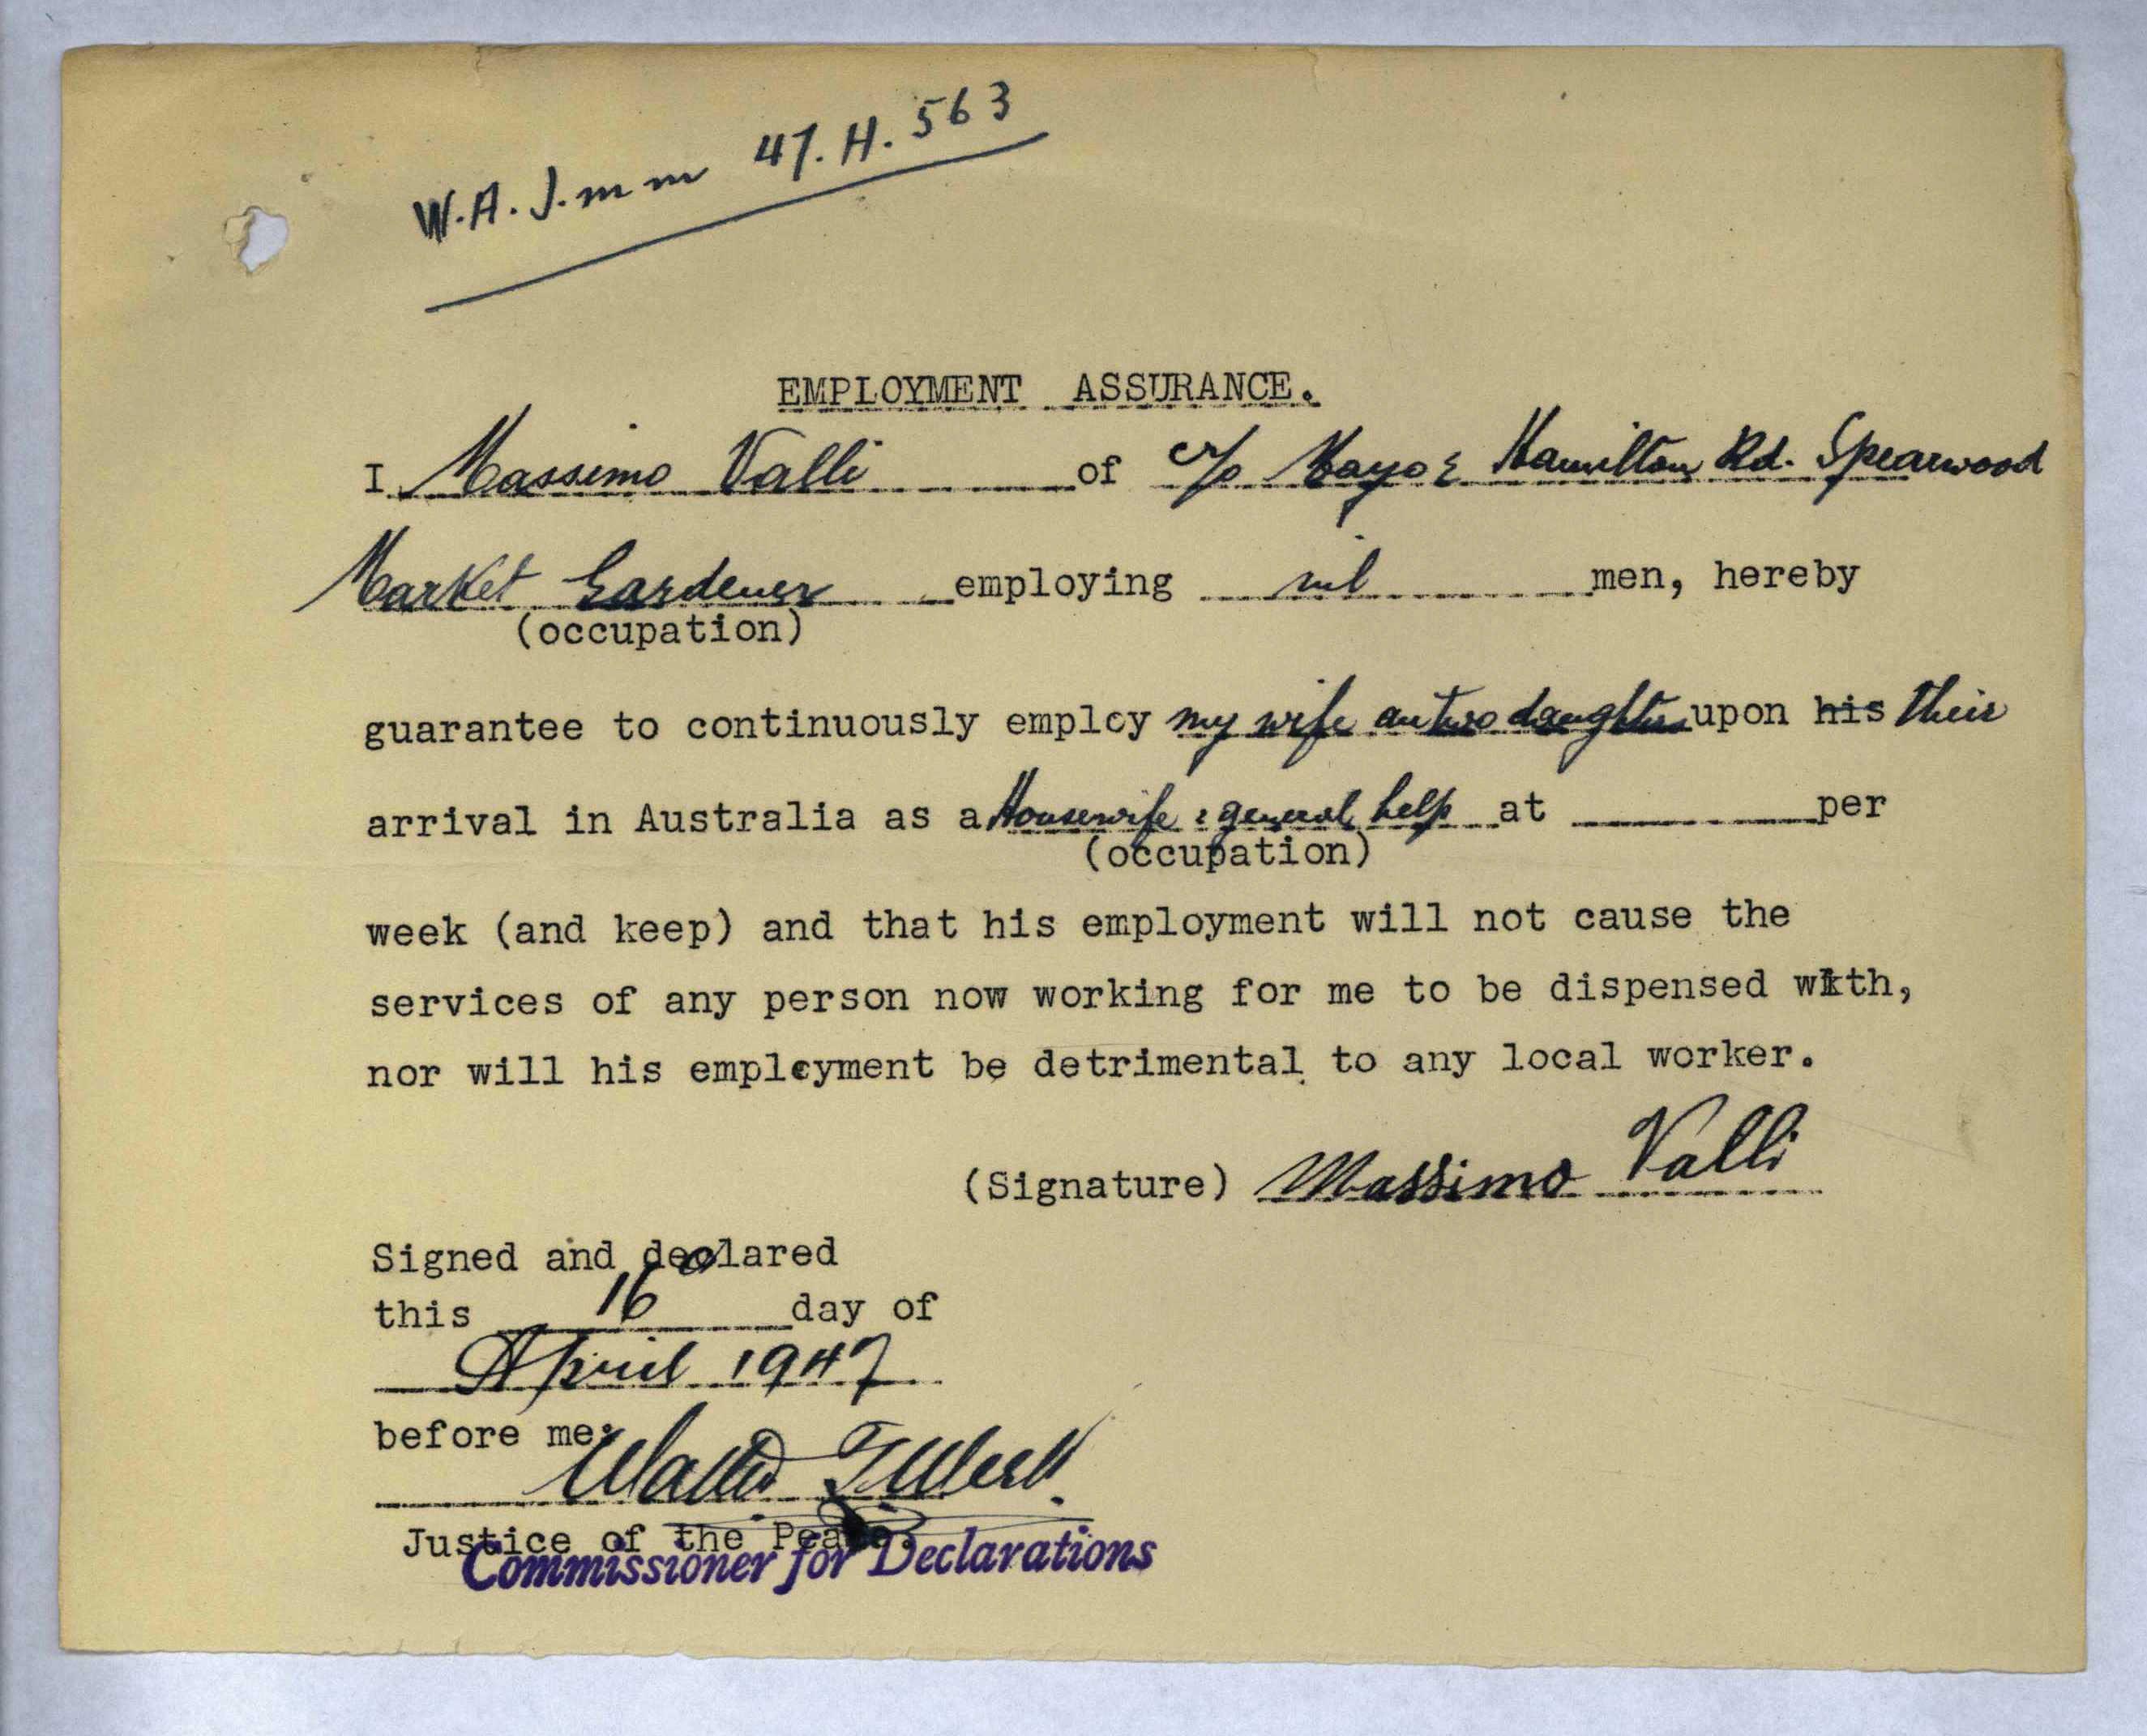 W.A. J.mm 47. H. 563
EMPLOYMENT ASSURANCE.
I Massimo Valli of c/o Mayor Hamilton Rd. Spearwood
Market Gardener employing nil men, hereby
(occupation)
guarantee to continuously employ my wife an two daughters upon his their
arrival in Australia as a Housewife & general help at per
(occupation)
week (and keep) and that his employment will not cause the
services of any person now working for me to be dispensed with,
nor will his employment be detrimental to any local worker.
(Signature) Massimo Valli
Signed and declared
this 16 day of
April 1947
before me:
Walter
Justice of the Peace.
Commissioner for Declarations